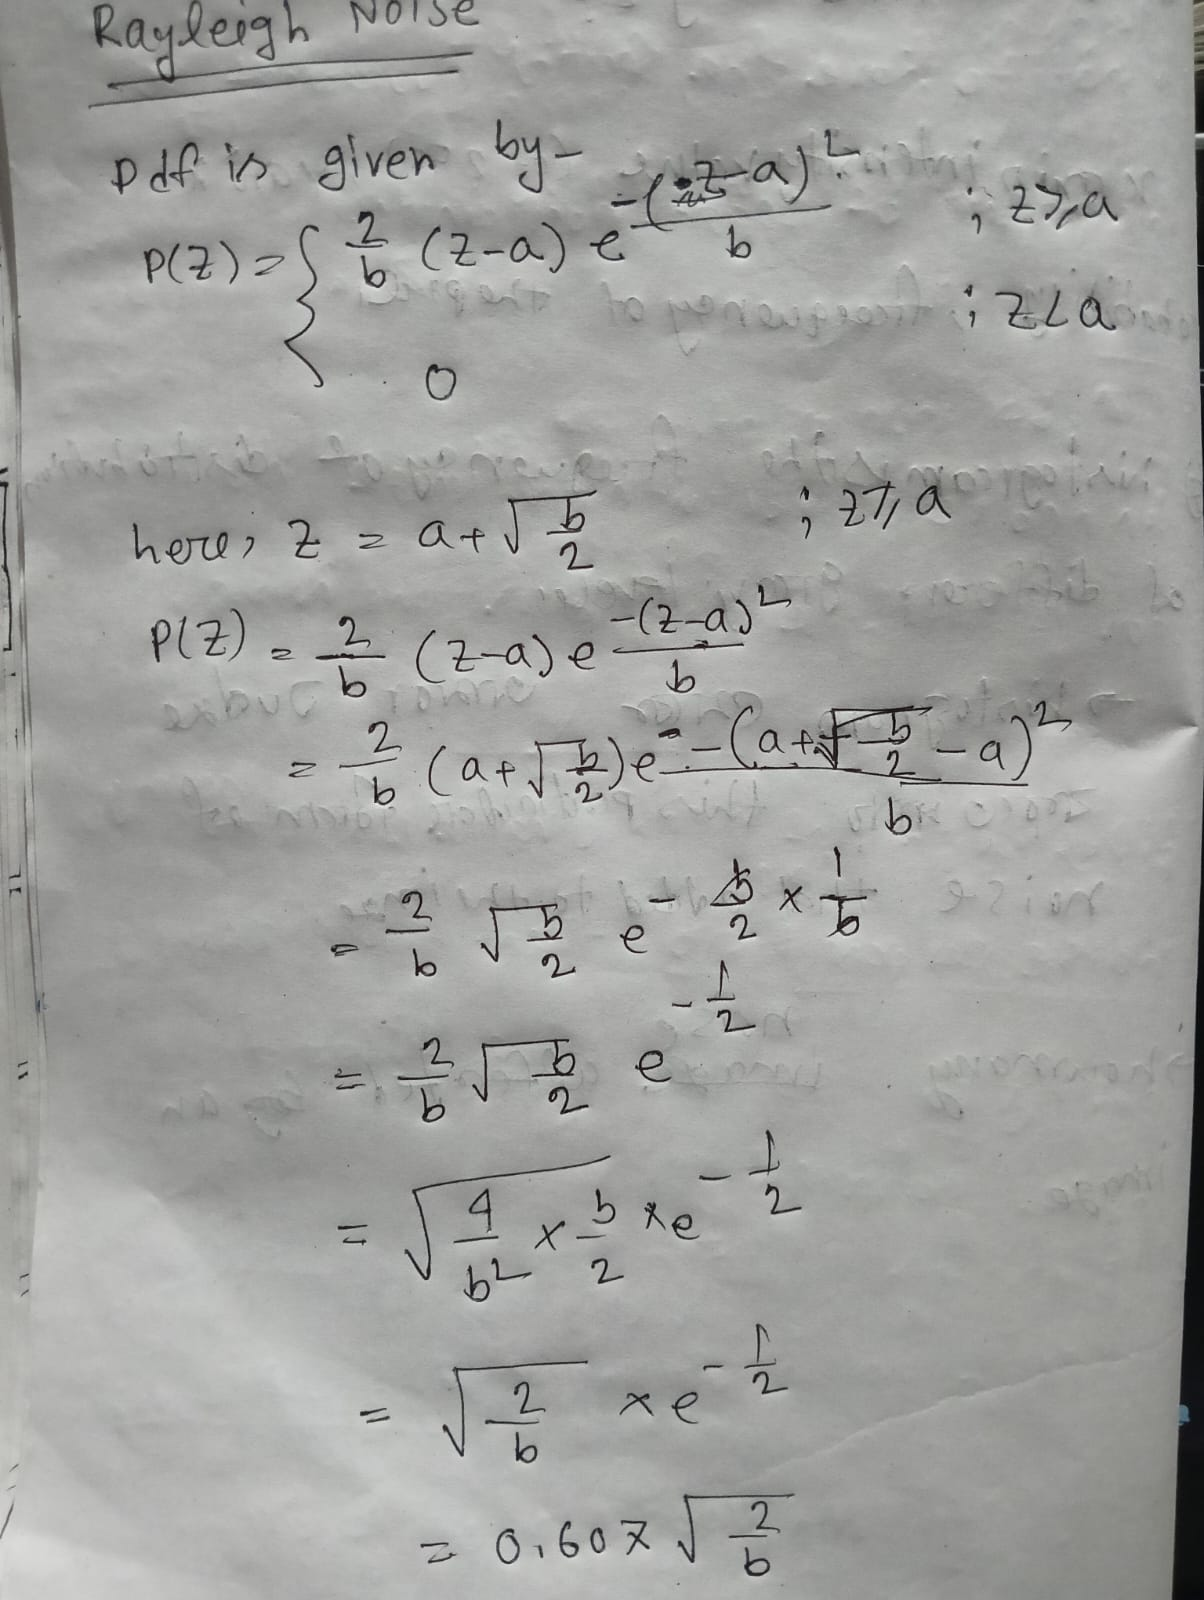 Rayleigh Noise
Pdf is given by-
P(Z) = { 2/b (z-a) e^-(z-a)²/b ; z≥a
0 ; z<a
here, z = a+√b/2 ; z≥a
P(Z) = 2/b (z-a) e^-(z-a)²/b
= 2/b (a+√b/2) e^-(a+√b/2-a)²/b
= 2/b √b/2 e^-b/2 × 1/b
= 2/b √b/2 e^-1/2
= √4/b² × b/2 × e^-1/2
= √2/b × e^-1/2
= 0.607 √2/b